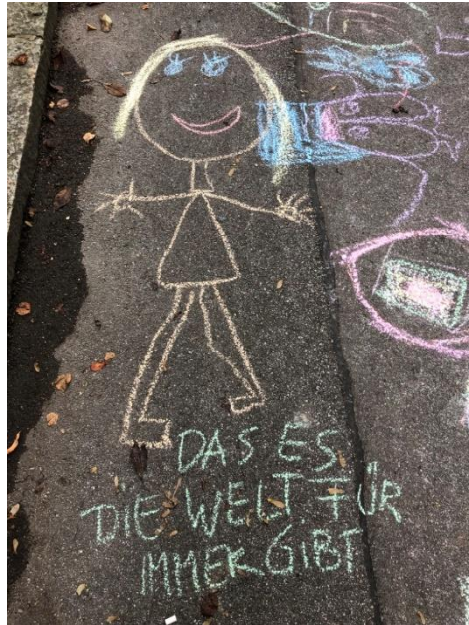 DAS ES
DIE WELT FÜR
IMMER GIBT